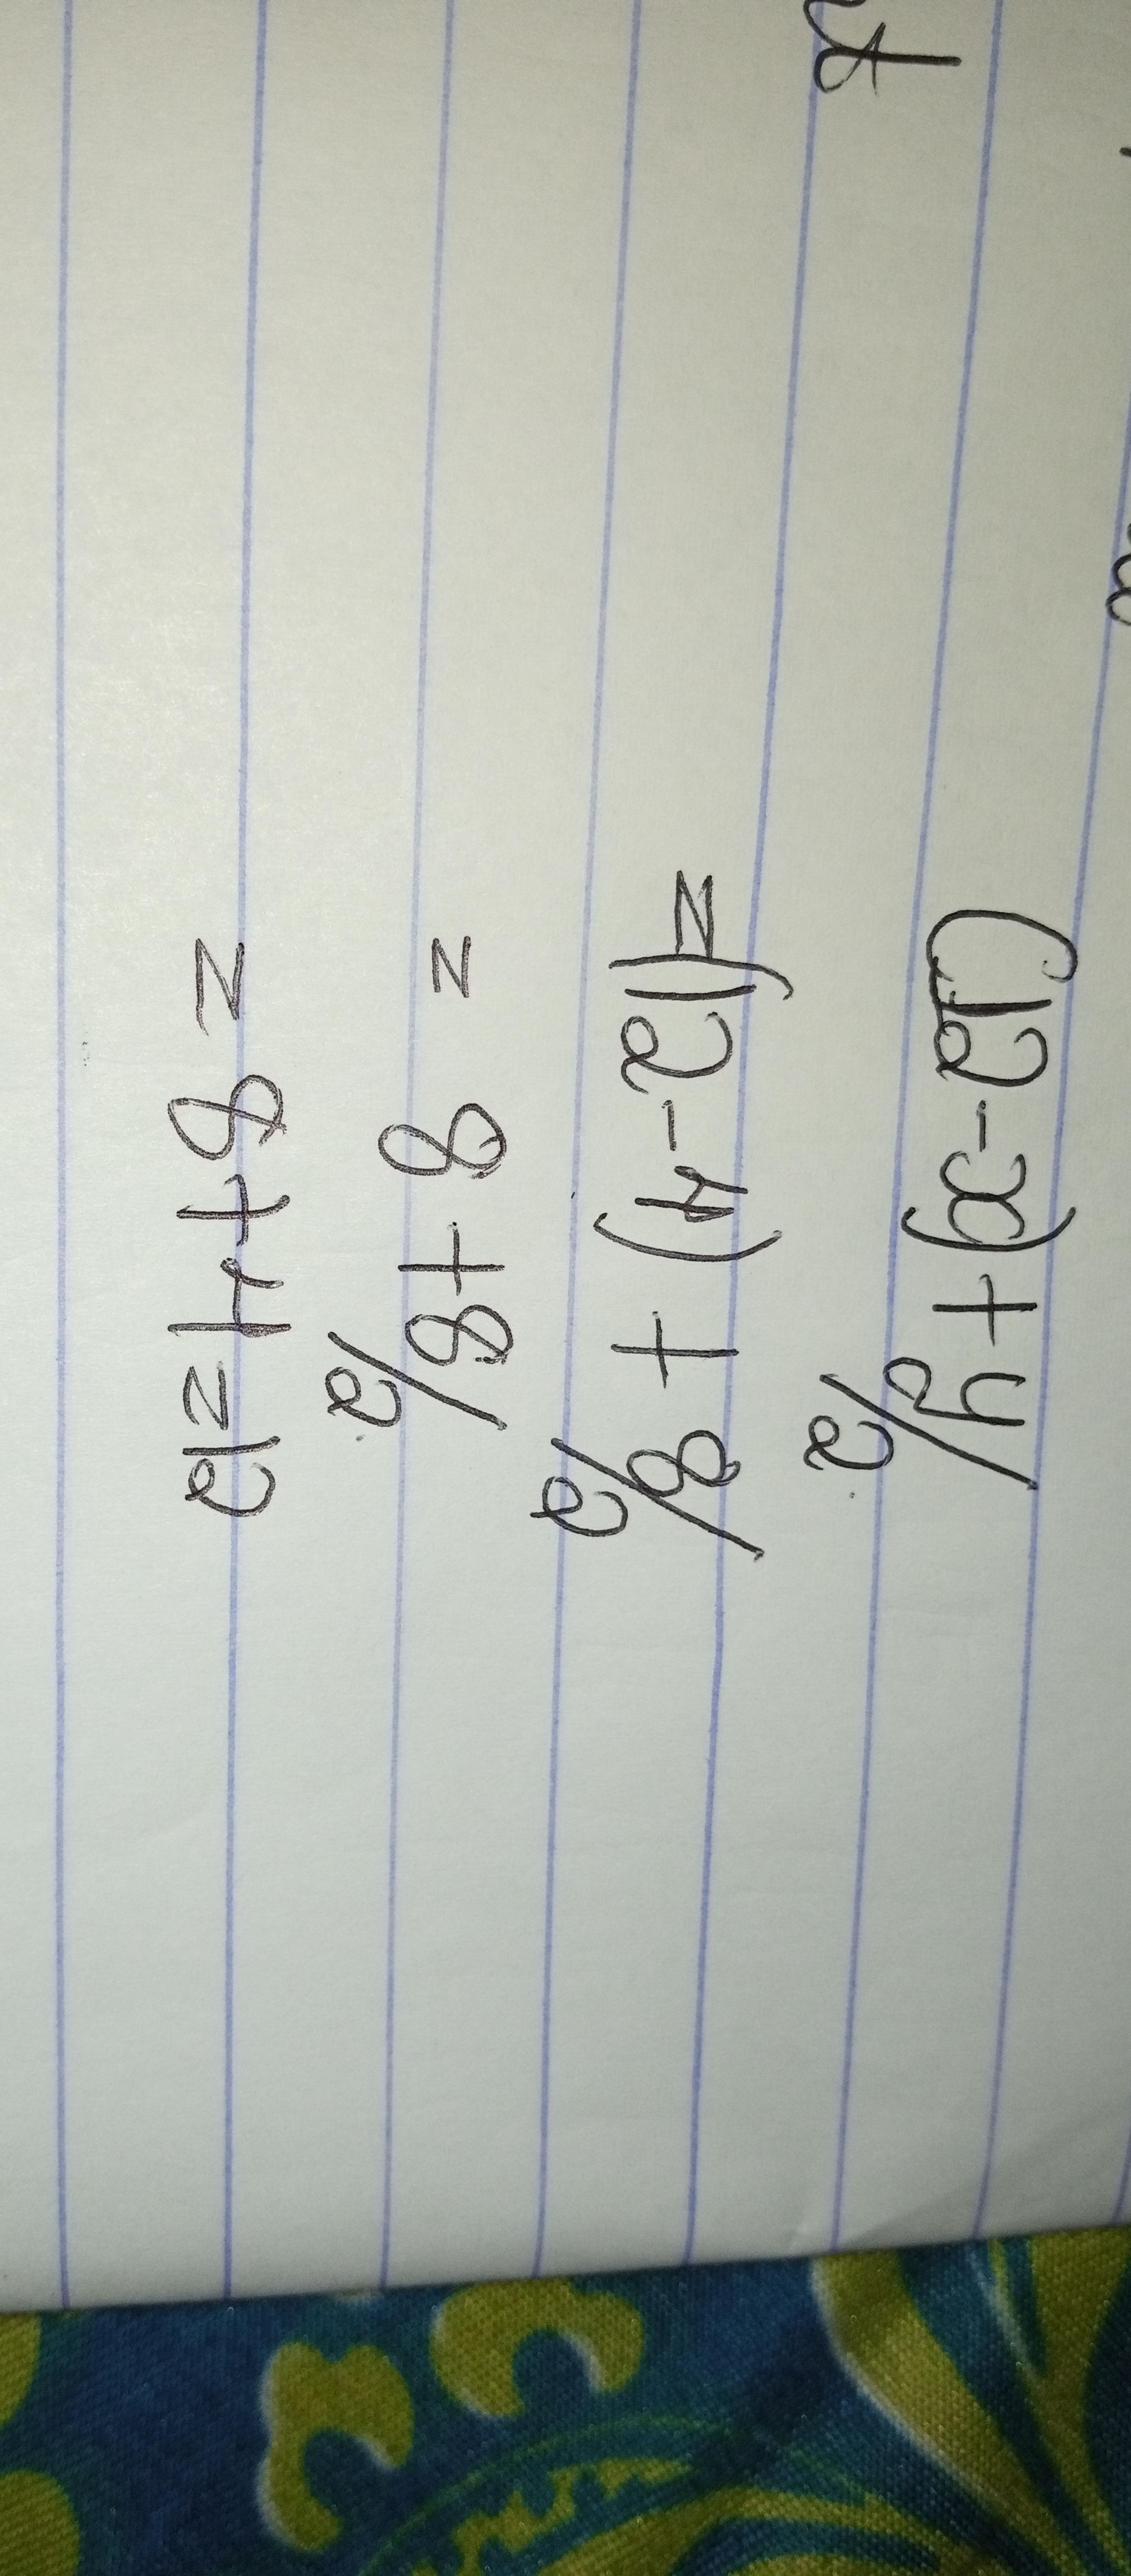 (12-x)+y/2
=(12-4)+8/2
= 8+8/2
= 8+4=12